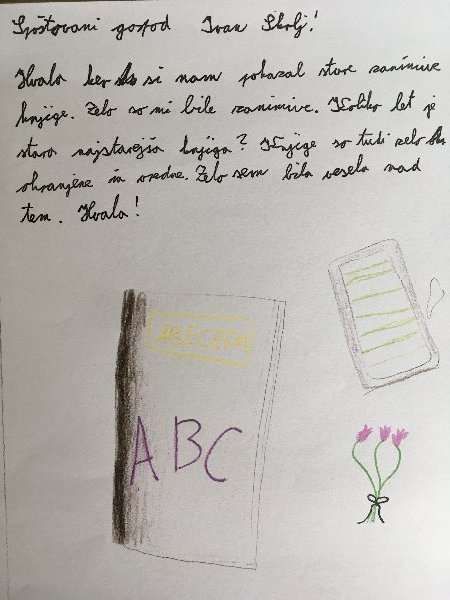 Spoštovani gospod Ivan Škrlj!
Hvala ker si nam pokazal stare zanimive
knjige. Zelo so mi bile zanimive. Koliko let je
stara najstarejša knjiga? Knjige so tudi zelo
ohranjene in vredne. Zelo sem bila vesela nad
tem. Hvala!
ABECEDA
ABC